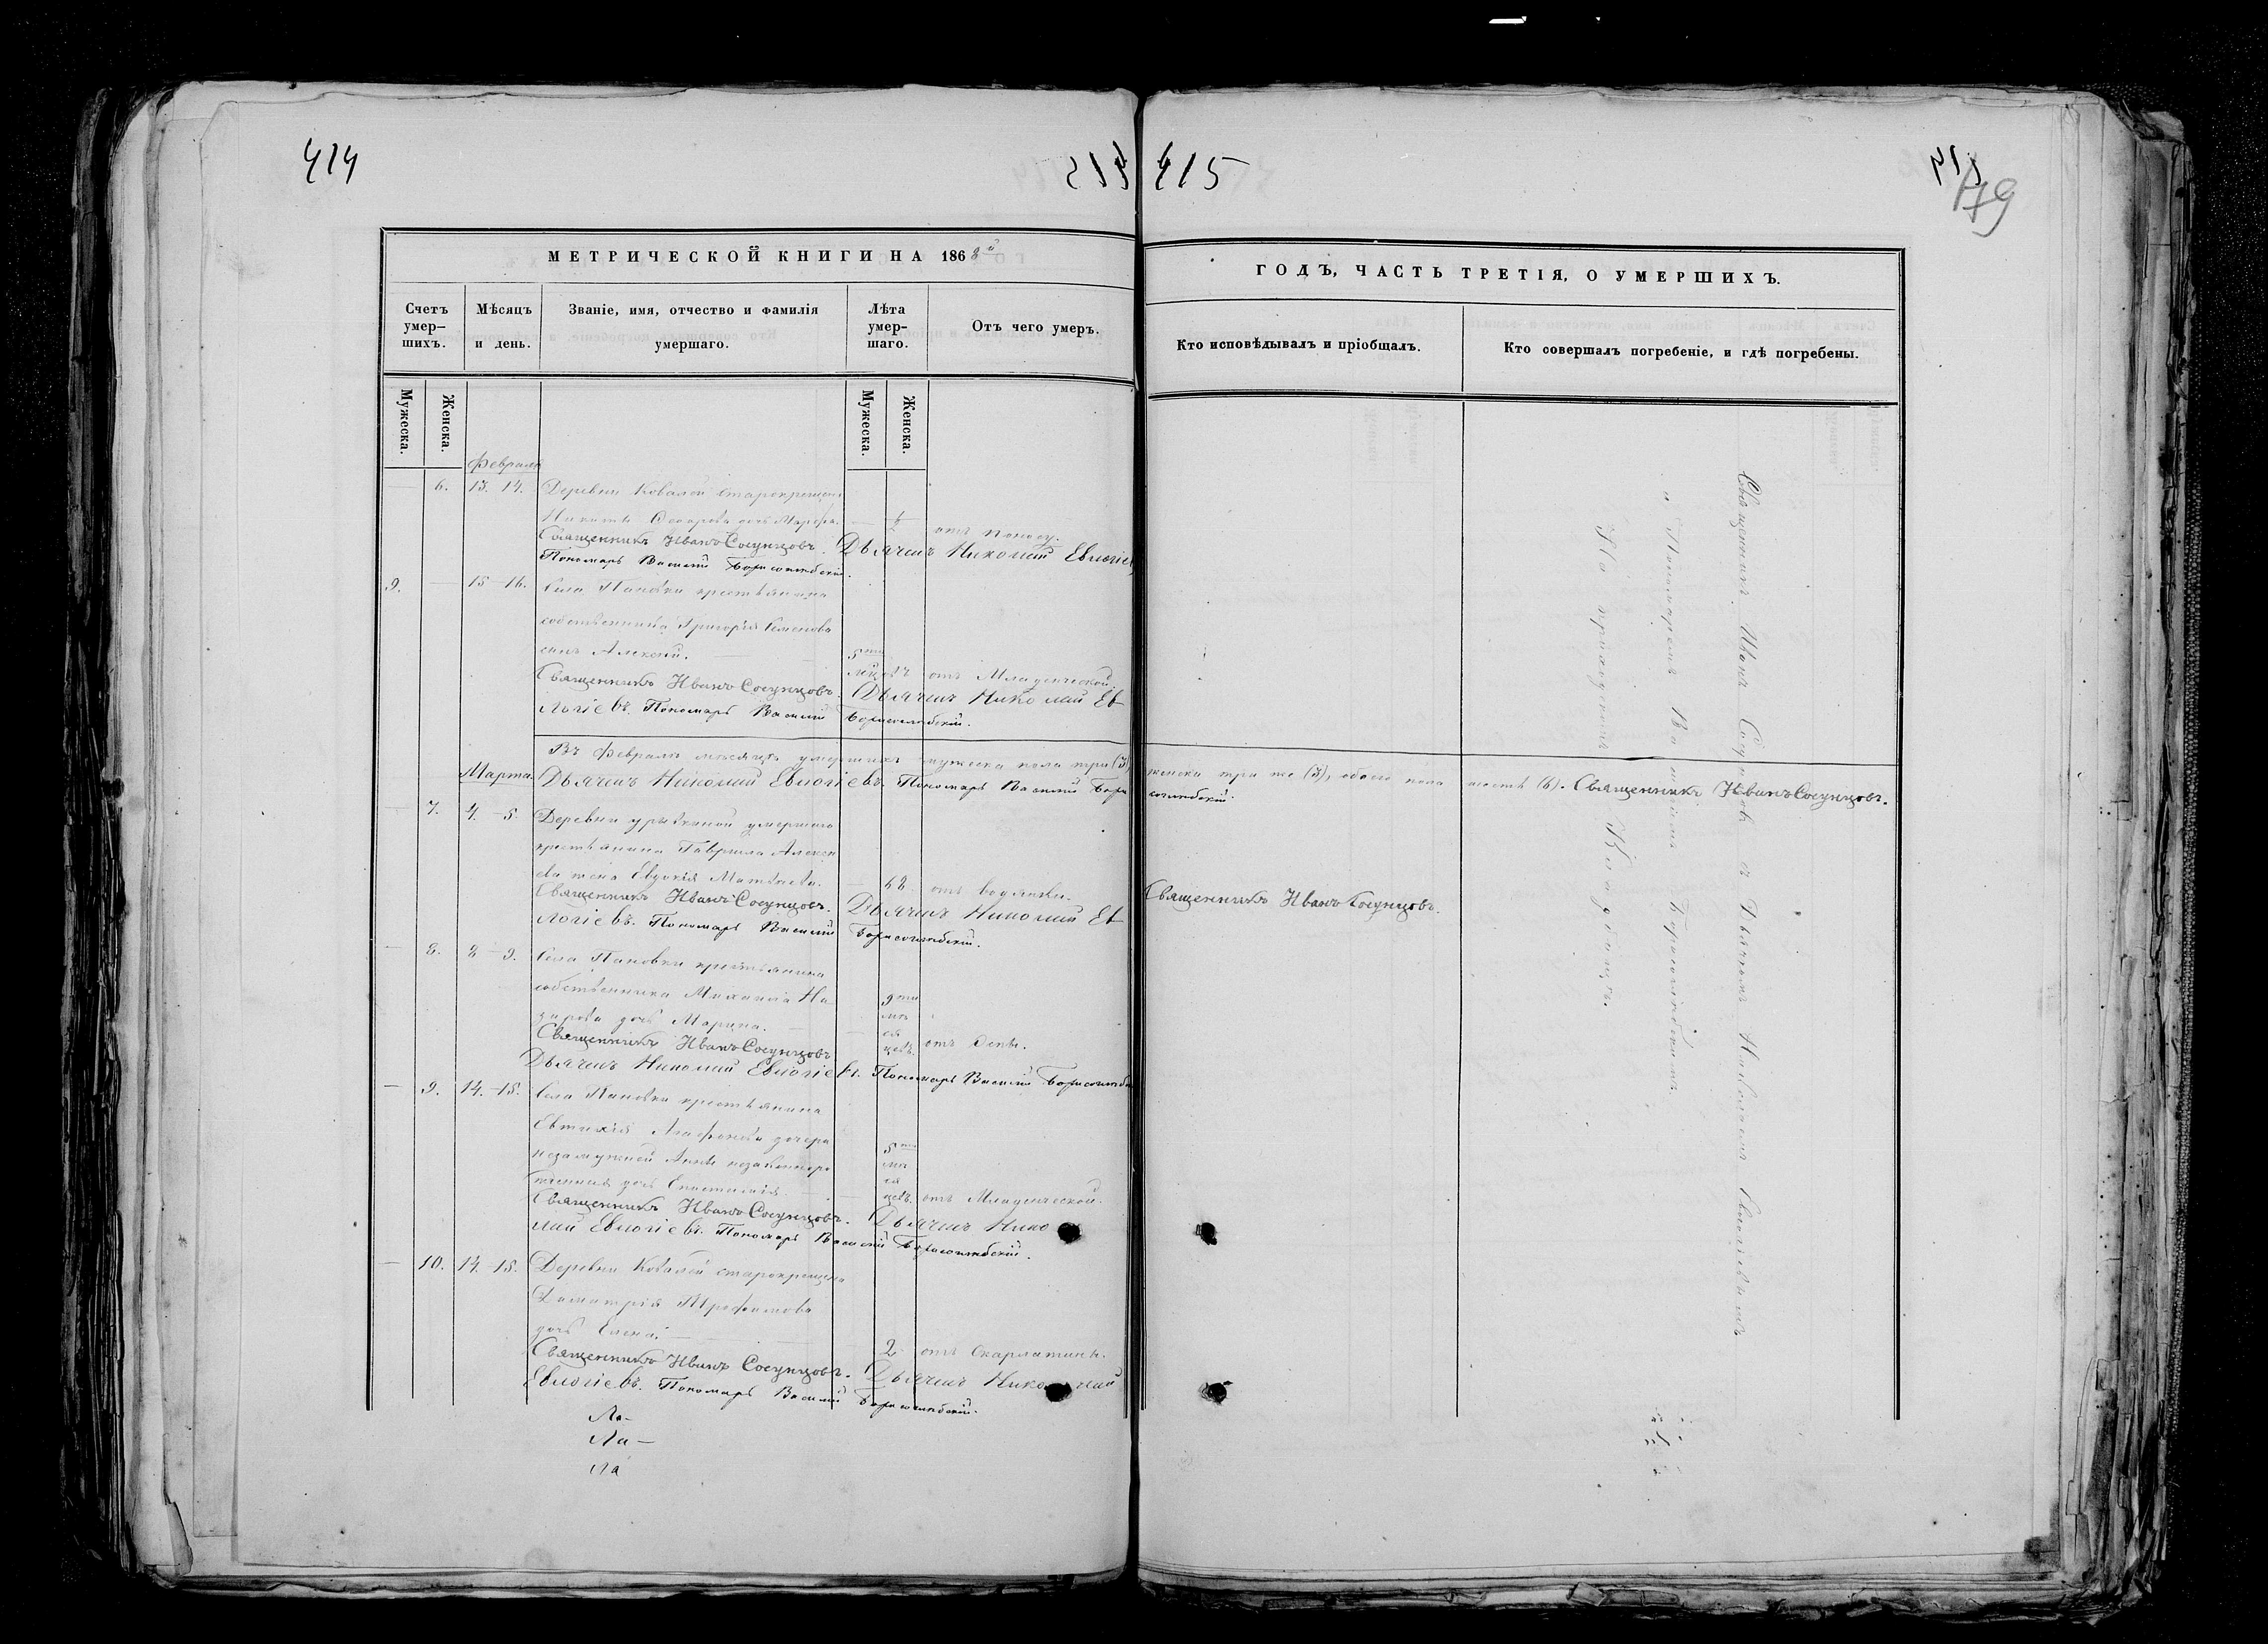 414
415
415
414
179
МЕТРИЧЕСКОЙ КНИГИ НА 1868й
ГОДЪ, ЧАСТЬ ТРЕТІЯ, О УМЕРШИХЪ.
Счетъ умер-шихъ.
Мѣсяцъ и день.
Званіе, имя, отчество и фамилія умершаго.
Лѣта умер-шаго.
Отъ чего умеръ.
Кто исповѣдывалъ и пріобщалъ.
Кто совершалъ погребеніе, и гдѣ погребены.
Мужеска.
Женска.
Мужеска.
Женска.
Февраль
— 6. 13. 14. Деревни Ковалей старокрещена
Никиты дочь Марфа. — ½ отъ поносу.
Священникъ Иванъ Сосунцовъ. Дьячекъ Николай Евлогіевъ
Пономарь Василій Борисоглѣбскій.
9. — 15–16. Села Пановки крестьянина
собственника Григорія Семенова
сынъ Алексѣй. — 5ти
мѣсяцевъ отъ Младенческой.
Священникъ Иванъ Сосунцовъ. Дьячекъ Николай Ев
логіевъ. Пономарь Василій Борисоглѣбскій.
Въ Февралѣ мѣсяцѣ умершихъ мужеска пола три (3) женска три же (3), обоего пола шесть (6). Священникъ Иванъ Сосунцовъ.
Марта. Дьячекъ Николай Евлогіевъ. Пономарь Василій Борисоглѣбскій.
— 7. 4.–5. Деревни умершаго
крестьянина Гаврила Алексѣ
ева жена Евдокія Матвѣева. — 68. отъ водянки.
Священникъ Иванъ Сосунцовъ. Дьячекъ Николай Ев
Священникъ Иванъ Сосунцовъ.
логіевъ. Пономарь Василій Борисоглѣбскій.
— 8. 8–9. Села Пановки крестьянина
собственника Михаила На
зарова дочь Марина. — 9ти мѣсяцевъ отъ оспы.
Священникъ Иванъ Сосунцовъ
Дьячекъ Николай Евлогіевъ. Пономарь Василій Борисоглѣбскій
— 9. 14.–15. Села Пановки крестьянина
Евтихія Агафонова дочери
незамужней Анны незаконнорожденная дочь — 5ти мѣсяцевъ. отъ Младенческой.
Священникъ Иванъ Сосунцовъ. Дьячекъ Нико
лай Евлогіевъ. Пономарь Василій Борисоглѣбскій.
— 10. 14.–15. Деревни Ковалей старокрещена
Димитрія Трофимова
дочь Елена. — 2 отъ Скарлатины.
Священникъ Иванъ Сосунцовъ. Дьячекъ Николай
Евлогіевъ. Пономарь Василій Борисоглѣбскій.
Ла-
Ла-
Ла
Священникъ Иванъ Сосунцовъ съ Дьячкомъ Николаемъ Евлогіевымъ
и Пономаремъ Василіемъ Борисоглѣбскимъ
На приходскомъ Кладбищѣ.